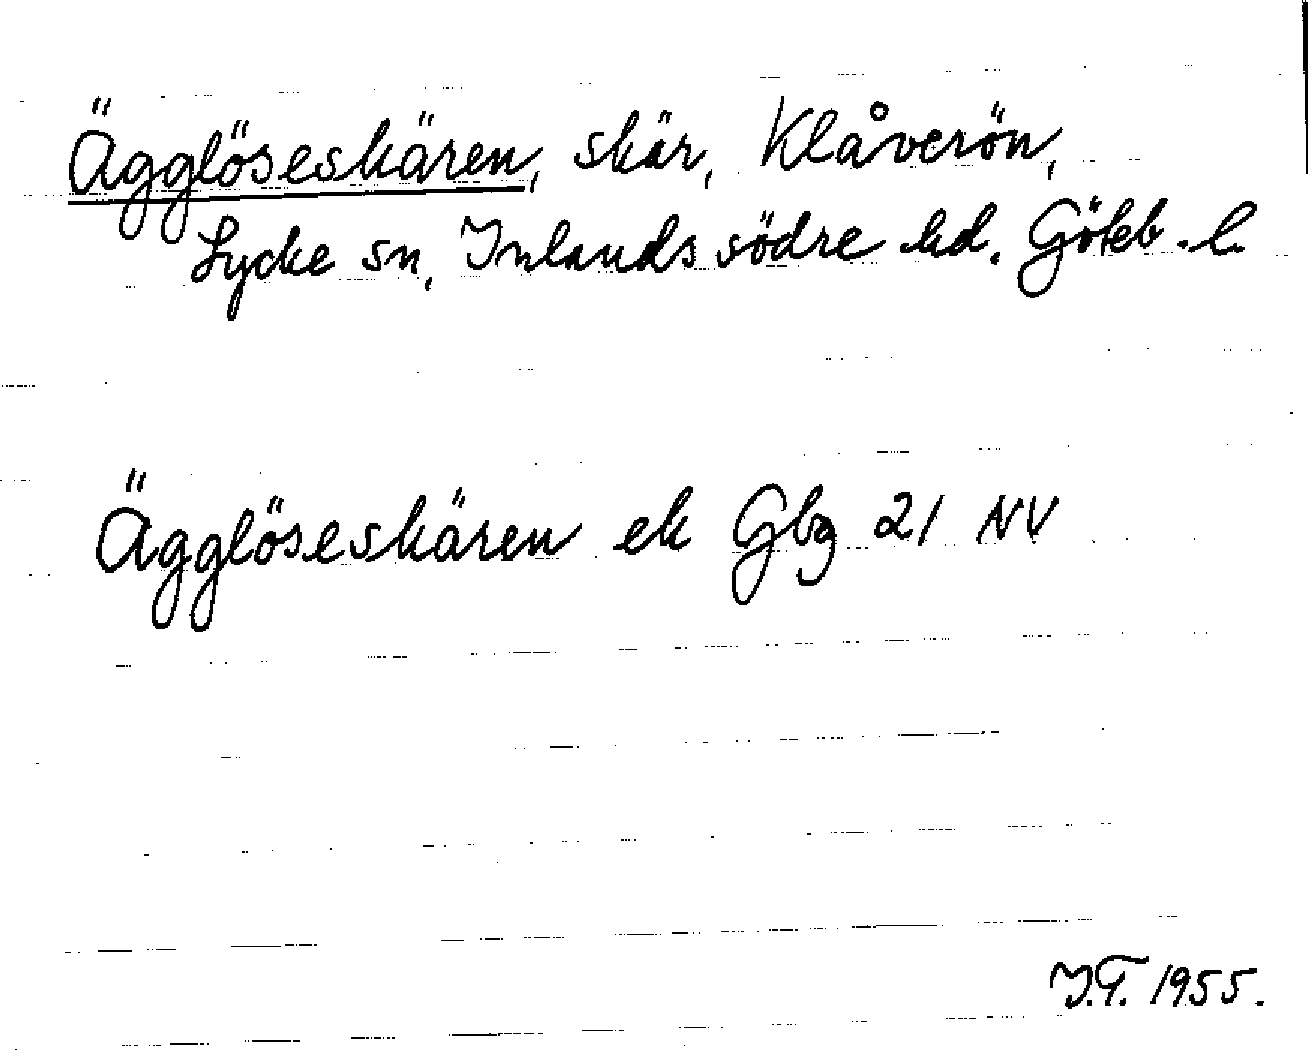 Ägglöseskären, skär, Klåverön,
Lycke sn, Inlands södre hd. Göteb. l.
Ägglöseskären ek Gbg 21 NV
I.T. 1955.